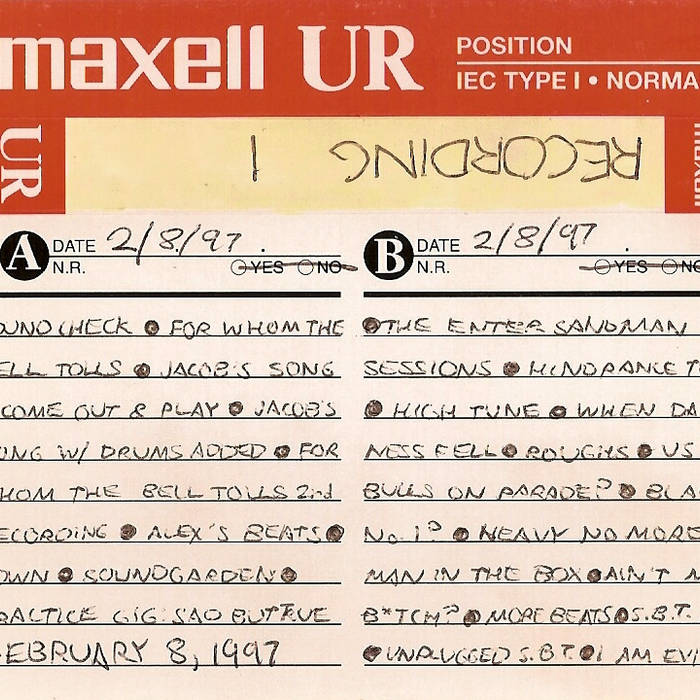 maxell UR POSITION
IEC TYPE I • NORMA
UR
RECORDING 1
maxell
A DATE 2/8/97.
N.R. YES NO
OUND CHECK ● FOR WHOM THE
ELL TOLLS ● JACOB'S SONG
COME OUT & PLAY ● JACOB'S
ONG W/ DRUMS ADDED ● FOR
HOM THE BELL TOLLS 2nd
ECORDING ● ALEX'S BEATS ●
OWN ● SOUNDGARDEN ●
RACTICE GIG: SAD BUT TRUE
FEBRUARY 8, 1997
B DATE 2/8/97.
N.R. YES NO
● THE ENTER SANDMAN
SESSIONS ● HINDRANCE T
● HIGH TUNE ● WHEN DA
NESS FELL ● ROUGHS ● US
BULLS ON PARADE? ● BLA
No. 1? ● HEAVY NO MORE
MAN IN THE BOX ● AIN'T M
B*TCH? ● MORE BEATS ● S.B.T.
● UNPLUGGED S.B.T. ● I AM EVI